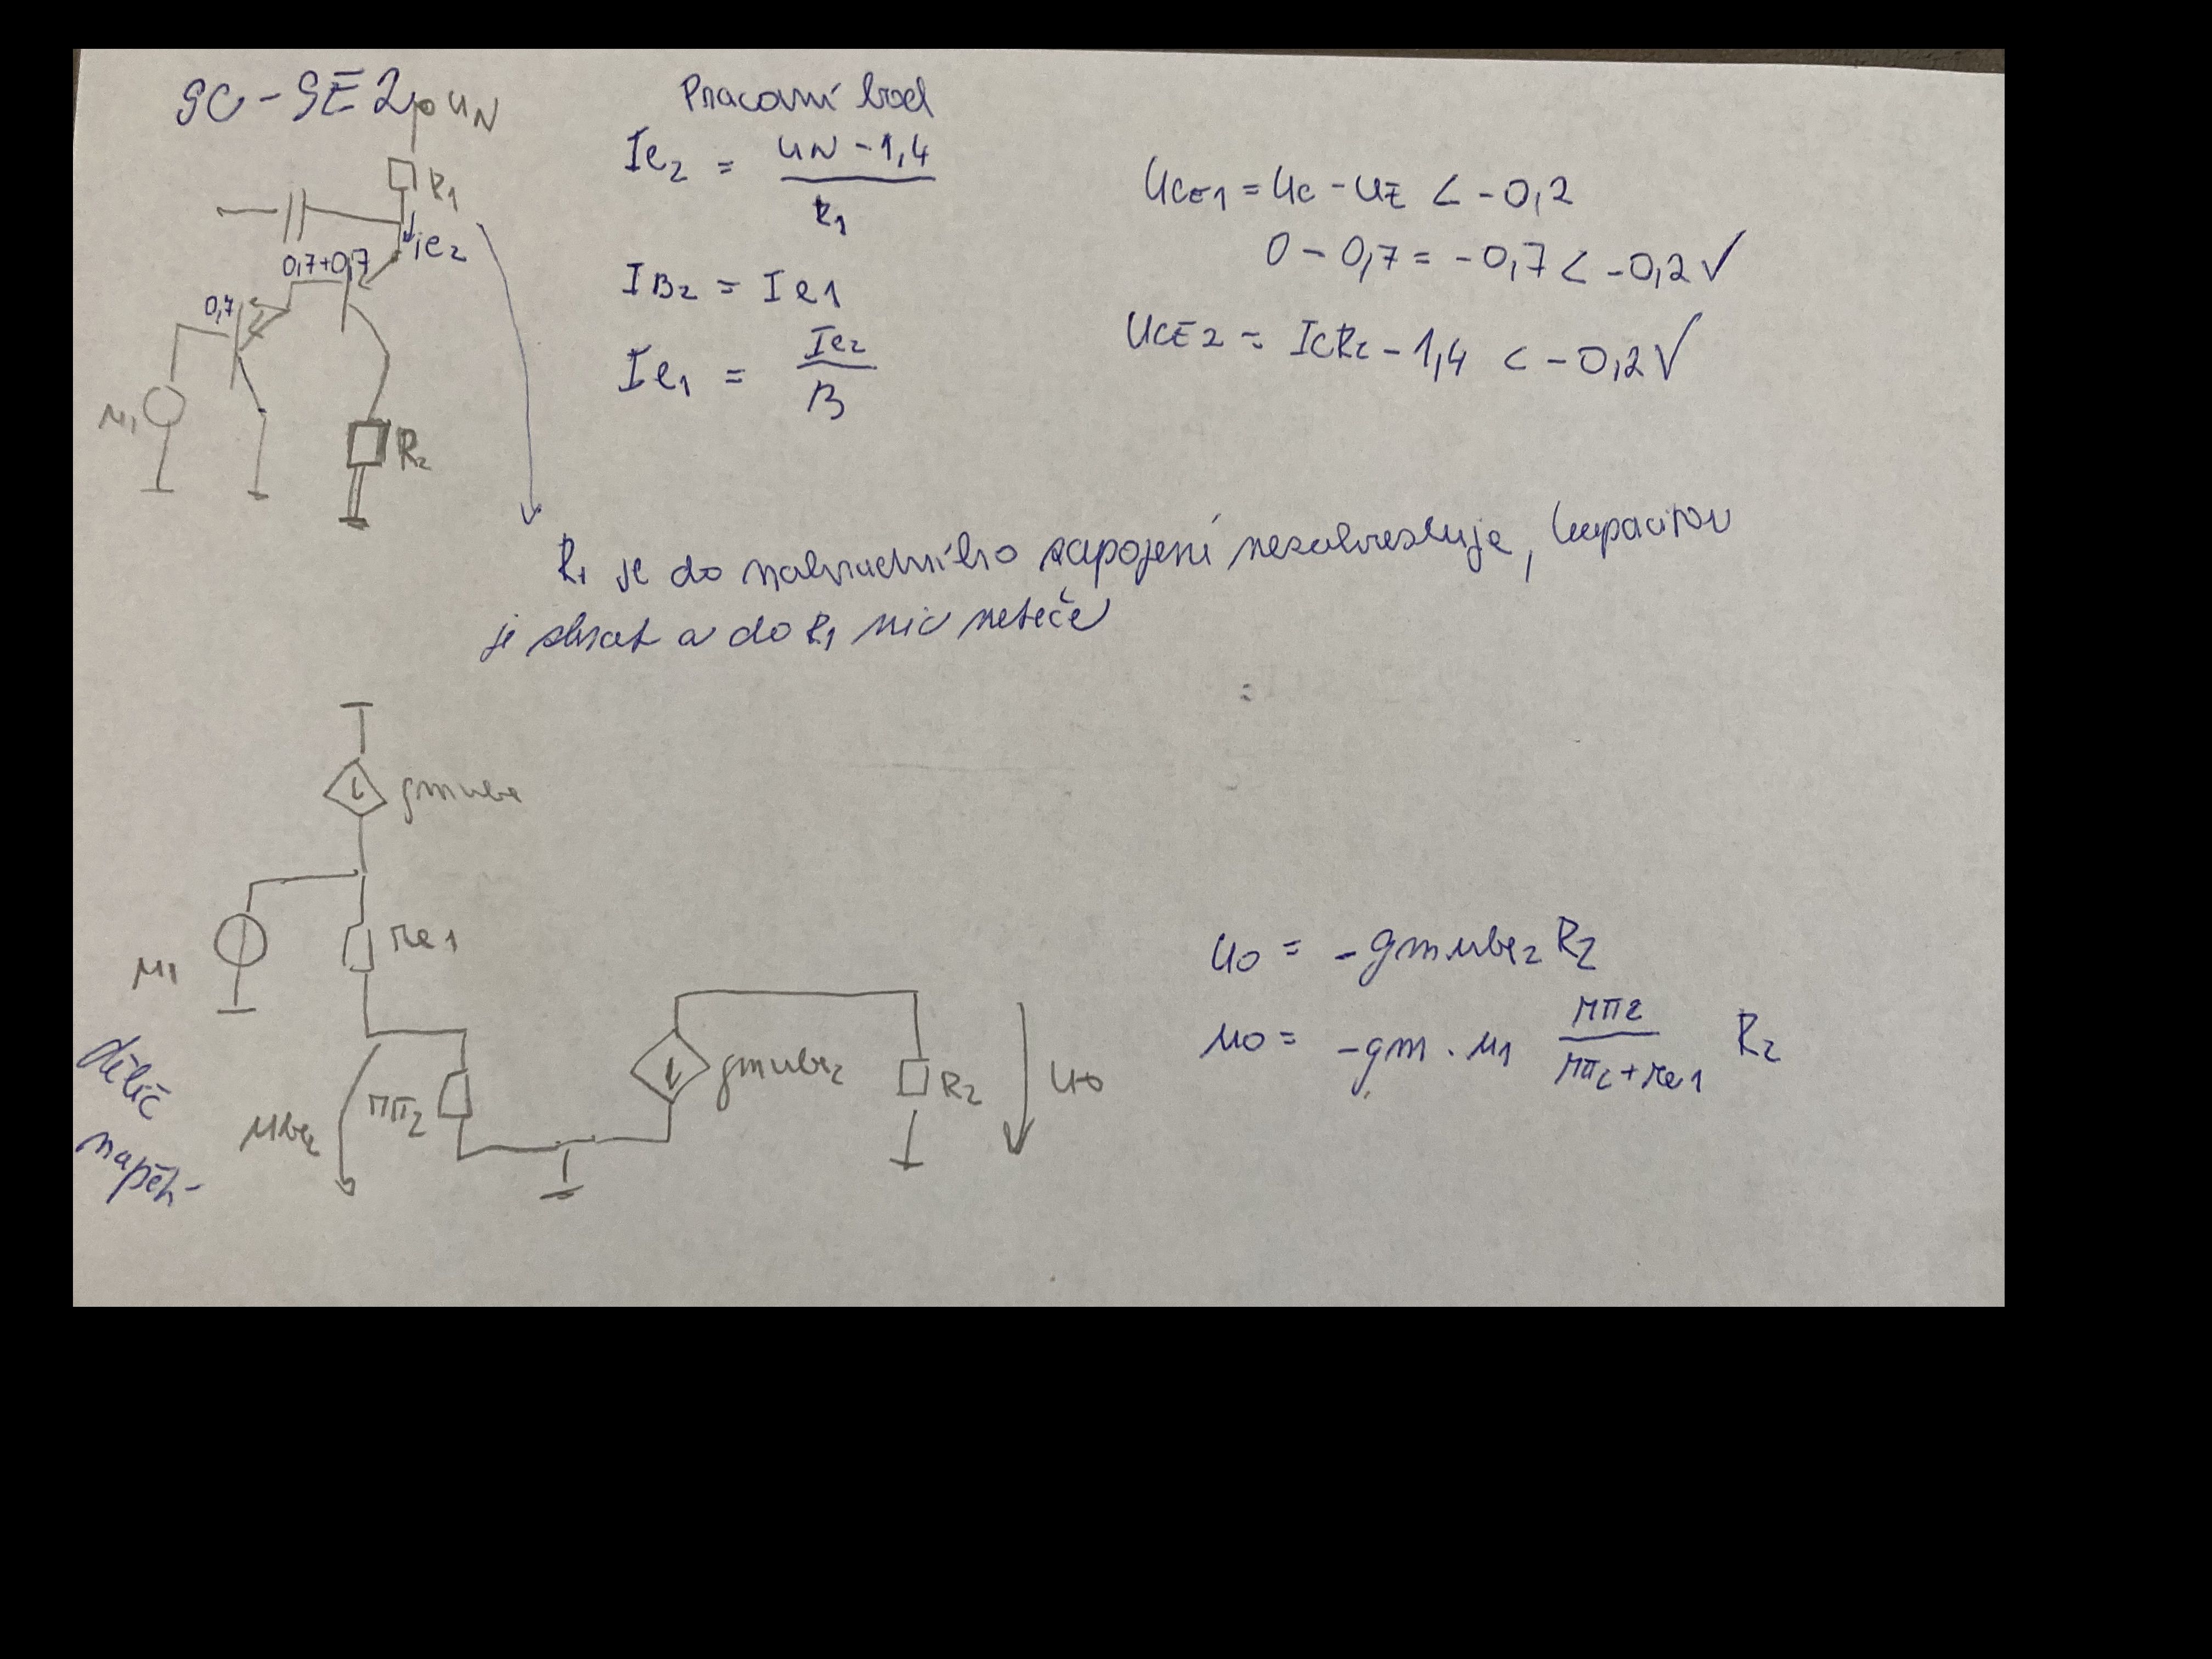 SC-SE2
UN
R1
ie2
0,7+0,7
0,7
u1
R2
Pracovní bod
Ie2 = UN - 1,4 / R1
IB2 = Ie1
Ie1 = Ie2 / B
UCE1 = UC - UE < -0,2
0 - 0,7 = -0,7 < -0,2 ✓
UCE2 = ICRC - 1,4 < -0,2 ✓
R1 je do náhradního zapojení nezakresluje, kapacitou
je zkrat a do R1 nic neteče
gmube
re1
u1
dělič
napětí
ube2
rπ2
gmube2
R2
uo
uo = -gmube2 R2
uo = -gm · u1 rπ2 / rπ2 + re1 R2